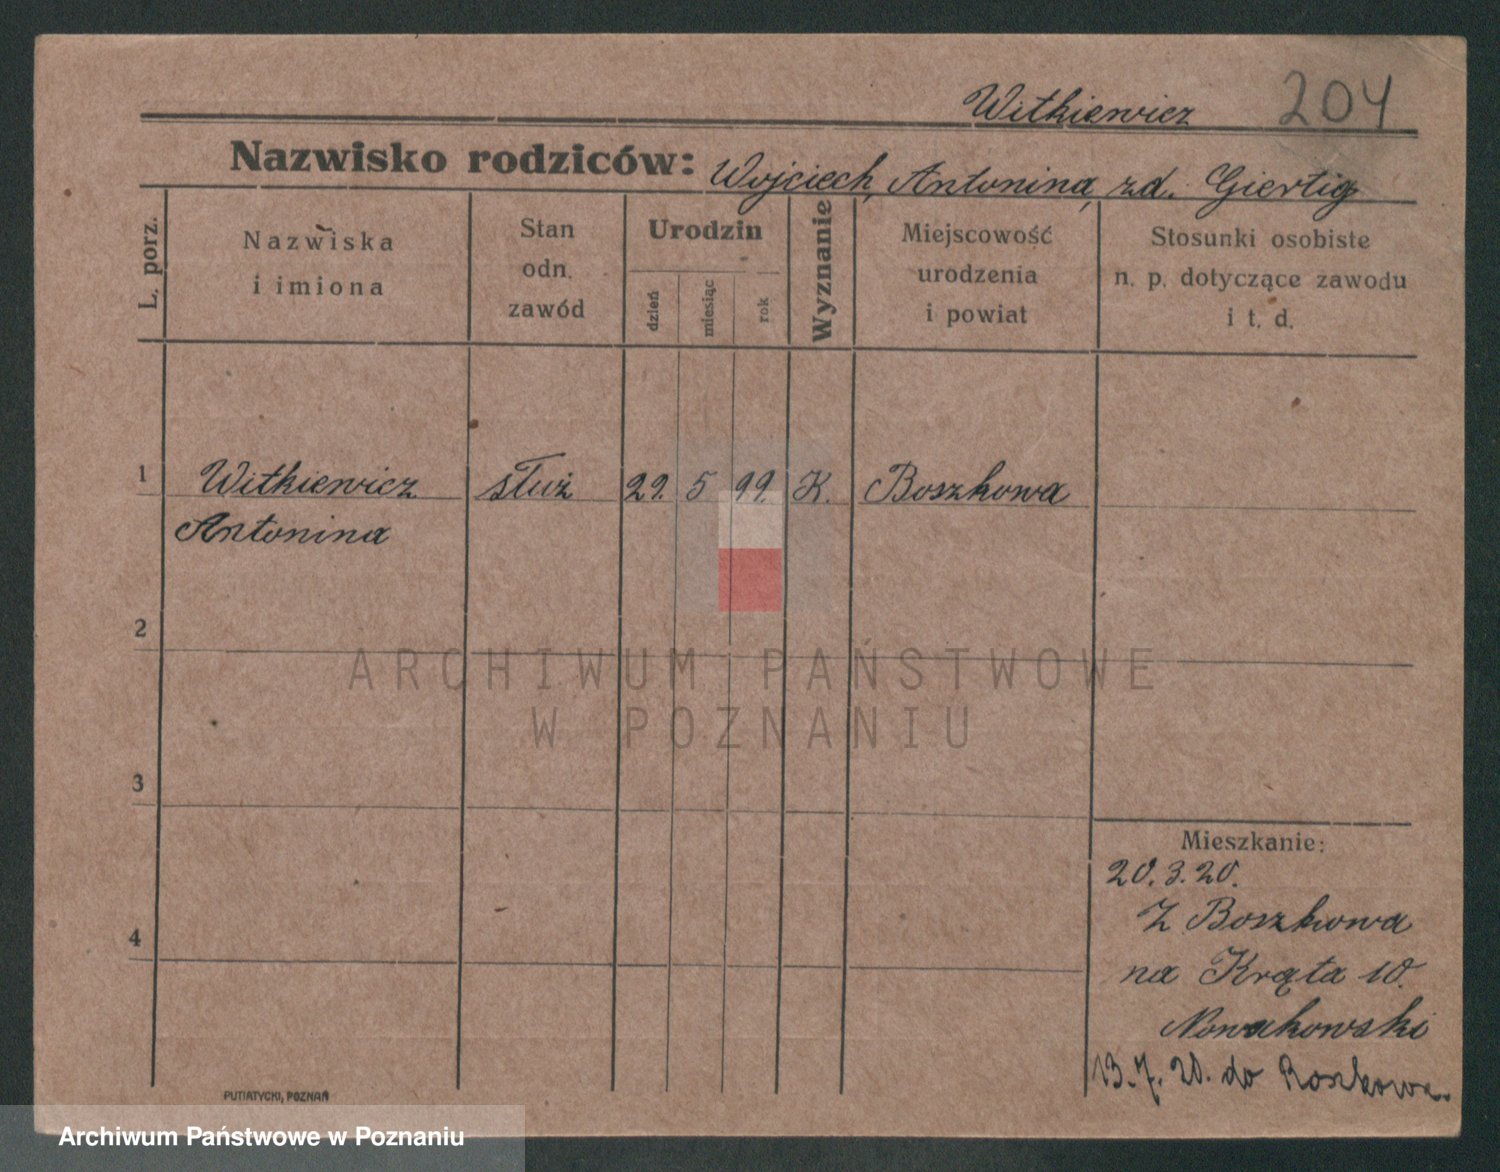 Witkiewicz 204
Nazwisko rodziców: Wojciech, Antonina, zd. Giertig
L. porz.
Nazwiska
i imiona
Stan
odn.
zawód
Urodzin
dzień
miesiąc
rok
Wyznanie
Miejscowość
urodzenia
i powiat
Stosunki osobiste
n. p. dotyczące zawodu
i t. d.
1 Witkiewicz służ 29. 5 99. K. Boszkowa
Antonina
2
3
4
Mieszkanie:
20.3.20.
Z Boszkowa
na Kręta 10.
Nowakowski
13.7.20. do Boszkowa.
PUTIATYCKI, POZNAŃ
ARCHIWUM PAŃSTWOWE
W POZNANIU
Archiwum Państwowe w Poznaniu